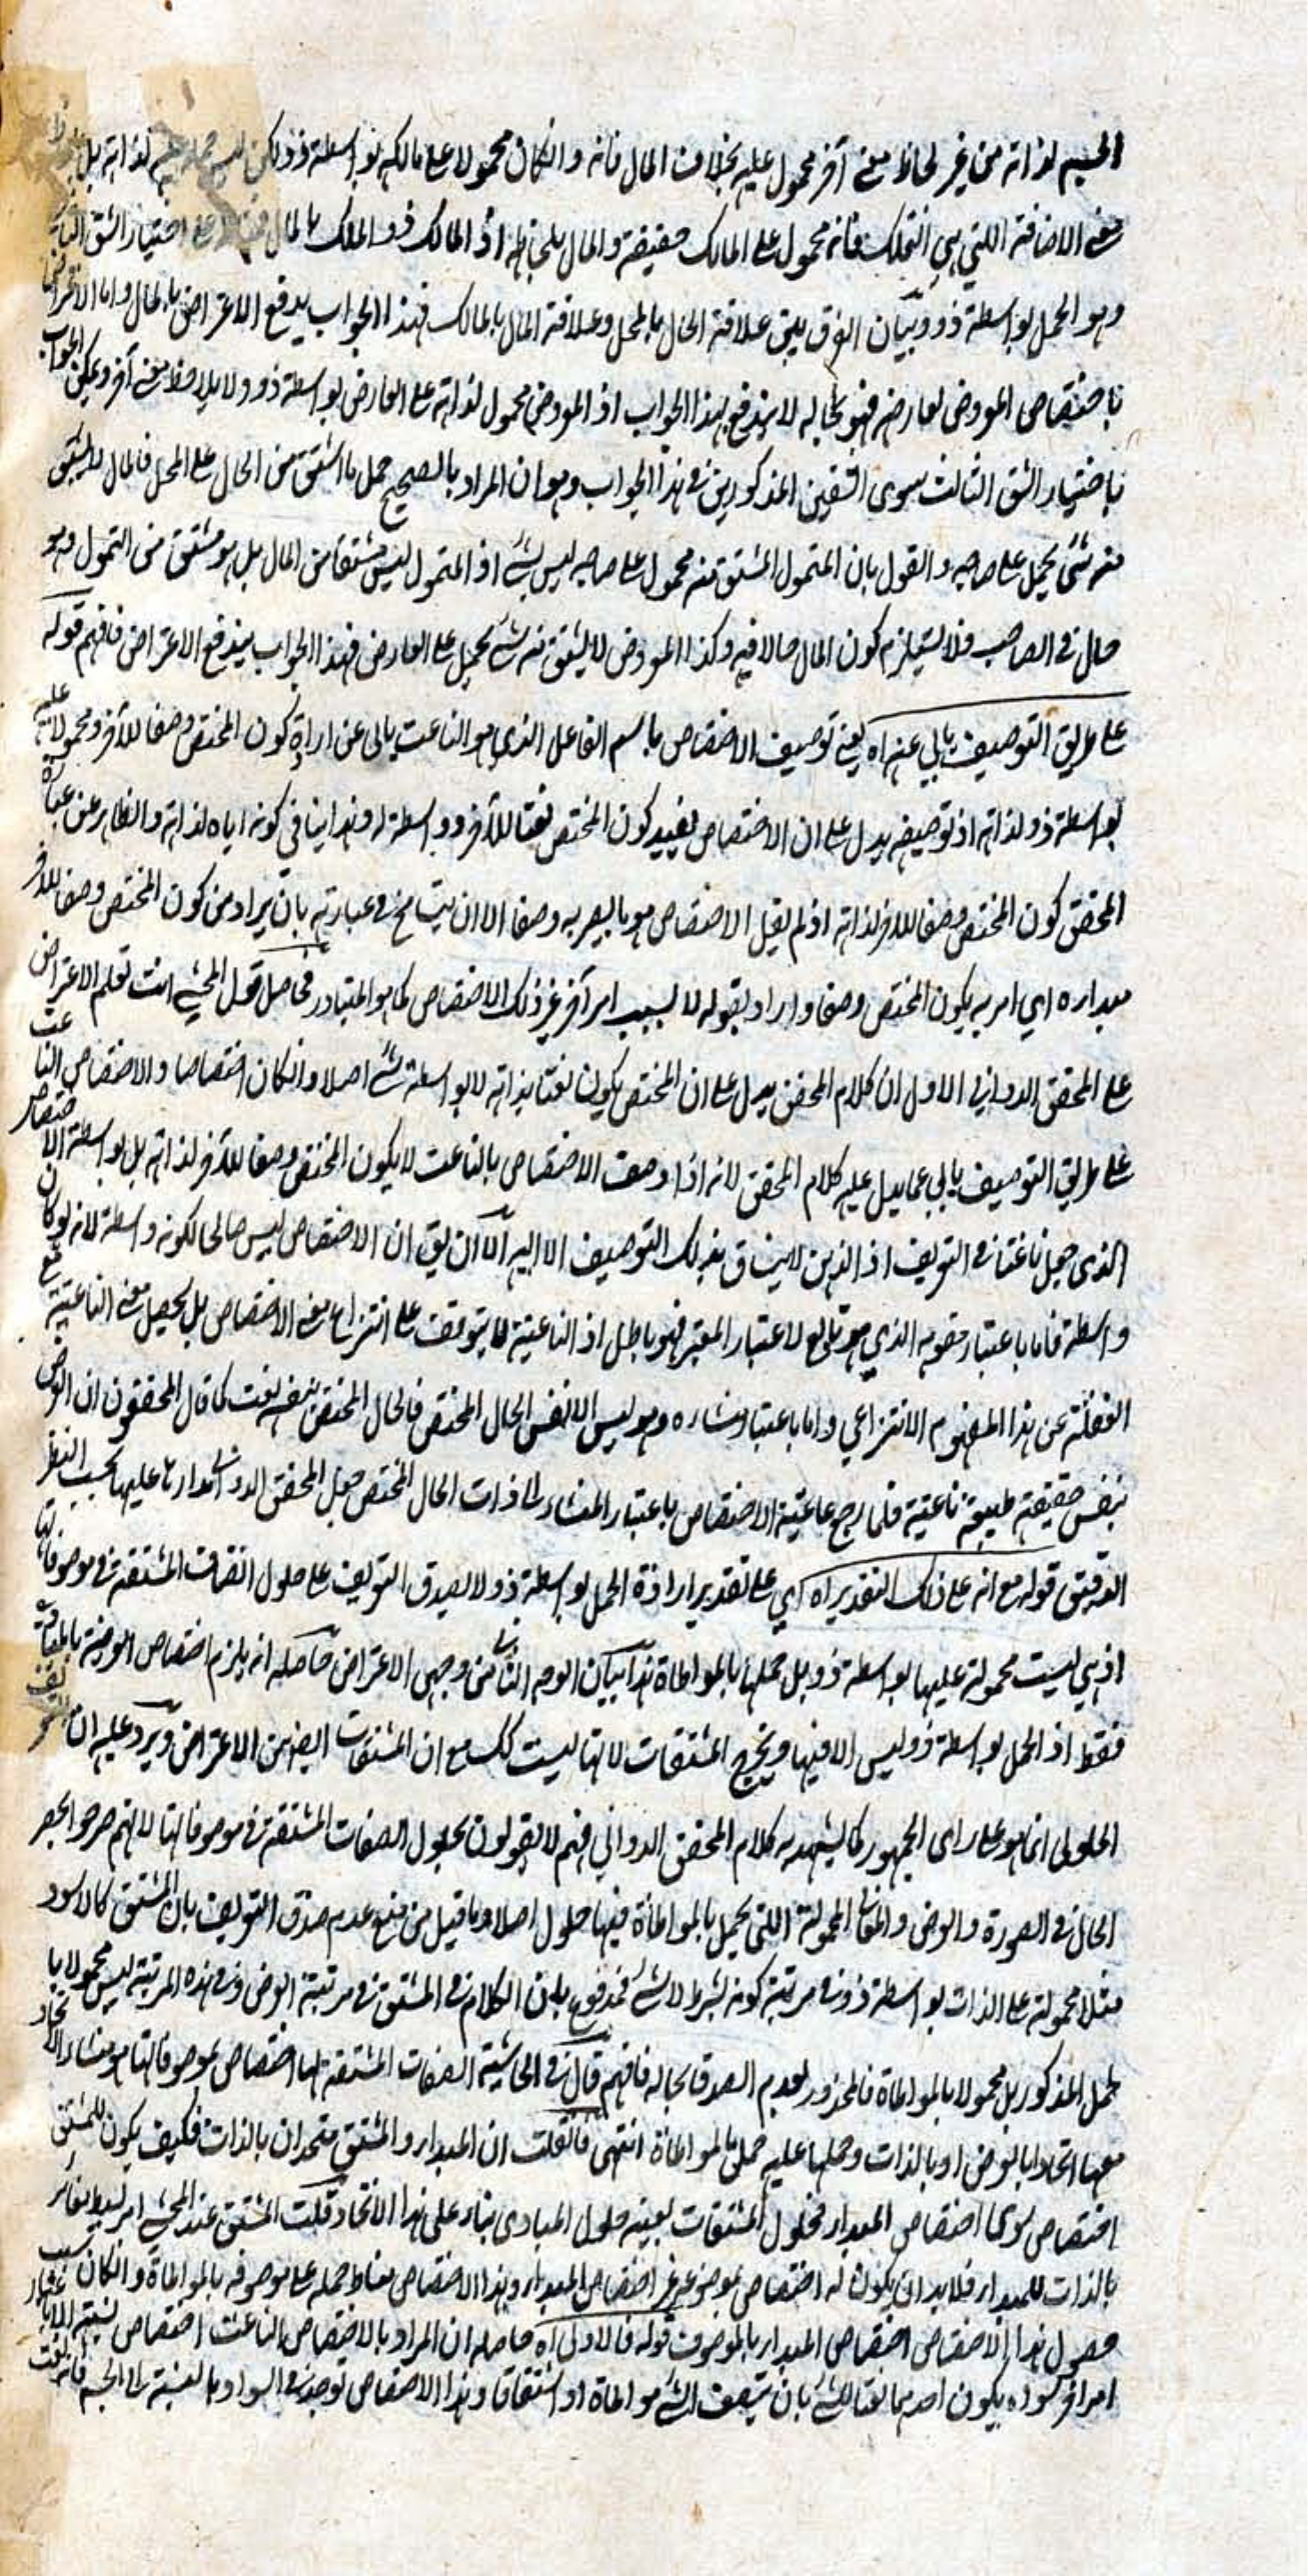 الجسم لذاته من غير لحاظ معنى آخر محمول عليه بخلاف المال فانه و انكان محمولا على مالكه بواسطة ذو ولكن ليس لذاته بل
معنى الاضافة اللتى هى التملك فانه محمول على المالك حقيقة و المال بلحاظها اذ المالك ذو الملك بالمال اختيار الشق الثانى
و هو الحمل بواسطة ذو و بيان الفرق بين علاقة الحال بالمحل و علاقة المال بالمالك فهذا الجواب يدفع الاعتراض بالمال و اما الاعتراض
باختصاص المعروض لعارضه فهو بحاله لا يندفع بهذا الجواب اذ المعروض محمول لذاته على العارض بواسطة ذو و لا يلاحظ معنى آخر و يمكن الجواب
باختيار الشق الثالث سوى الشقين المذكورين فى هذا الجواب و هو ان المراد بالصحيح حمل ما اشتق من الحال على المحل فالمال لا يشتق
منه شئ يحمل على صاحبه و القول بان المتمول المشتق منه محمول على صاحبه ليس بشئ اذ المتمول ليس مشتقا من المال بل هو مشتق من التمول و هو
حال فى الصاحب فلا يستلزم كون المال حالا فيه و كذا المعروض لا يشتق منه شئ يحمل على العارض فهذا الجواب يندفع الاعتراض فافهم قوله
على طريق التوصيف يابى عنه اه يعنى توصيف الاختصاص باسم الفاعل الذى هو الناعت يابى عن ارادة كون المختص وصفا للآخر و محمولا عليه
بواسطة ذو لذاته اذ توصيفه يدل على ان الاختصاص يفيد كون المختص نعتا للآخر و واسطة له و هذا ينافى كونه اياه لذاته و الظاهر عن عبارة
المحقق كون المختص وصفا للآخر لذاته اذ لم يقل الاختصاص هو ما يصير به وصفا الا ان يتسامح فى عبارته بان يراد من كون المختص وصفا للآخر
مبداره اى امر به يكون المختص وصفا و اراد بقوله لا بسبب امر آخر غير ذلك الاختصاص كما هو المتبادر فحاصل قول المحشى انت تعلم الاعتراض
على المحقق الدوانى الاول ان كلام المحقق يدل على ان المختص يكون نعتا بذاته لا بواسطة شئ اصلا و انكان اختصاصا و الاختصاص الناعت
على طريق التوصيف يابى عما يدل عليه كلام المحقق لانه اذا وصف الاختصاص بالناعت لا يكون المختص وصفا للآخر لذاته بل بواسطة الاختصاص
الذى جعل ناعتا فى التعريف اذ الذهن لا ينساق بذلك التوصيف الا اليه الا ان يق ان الاختصاص ليس صالحا لكونه واسطة لانه لو كان
واسطة فاما باعتبار مفهومه الذى هو تابع لاعتبار المعتبر فهو باطل اذ الناعتية لا يتوقف على انتزاع معنى الاختصاص بل يحصل معنى الناعتية مع
الغفلة عن هذا المفهوم الانتزاعى و اما باعتبار منشاءه و هو ليس الا نفس الحال المختص فالحال المختص بنفسه نعت كما قال المحققون ان العرض
بنفس حقيقته طبيعة ناعتية فلما رجع ناعتية الاختصاص باعتبار المنشاء الى ذات الحال المختص جعل المحقق الدوانى مدارها عليها بحسب النظر
الدقيق قوله مع انه على ذلك التقدير اه اى على تقدير ارادة الحمل بواسطة ذو لا يصدق التعريف على حلول الصفات المشتقة فى موصوفاتها
اذ هى ليست محمولة عليها بواسطة ذو بل حملها بالمواطاة هذا بيان الوجه الثانى من وجهى الاعتراض حاصله انه يلزم اختصاص العرضية بالمبادى
فقط اذ الحمل بواسطة ذو ليس الا فيها و يخرج المشتقات لانها ليست كك مع ان المشتقات ايضا من الاعراض و يرد عليه ان التعريف
الحلولى انما هو على راى الجمهور كما يشهد به كلام المحقق الدوانى فهم لا يقولون بحلول الصفات المشتقة فى موصوفاتها لانهم صرحوا بحصر
الحال فى الصورة و العرض و المعانى المحمولة اللتى تحمل بالمواطاة فيها حلول اصلا و ما قيل من منع عدم صدق التعريف بان المشتق كالاسود
مثلا محمولة على الذات بواسطة ذو فى مرتبة كونه بشرط لا شئ فمدفوع بان الكلام فى المشتق فى مرتبة العرض و فى هذه المرتبة ليس محمولا با
لحمل المذكور بل محمولا بالمواطاة فالمحذور لعدم الصدق بحاله فافهم قال فى الحاشية الصفات المشتقة لها اختصاص بموصوفاتها هو منشاء الاتحاد
معها اتحادا بالعرض او بالذات و حملها عليه حمل بالمواطاة انتهى فانقلت ان المبدا و المشتق متحدان بالذات فكيف يكون للمشتق
اختصاص سوى اختصاص المبدا فحلول المشتقات بعينه حلول المبادى بناء على هذا الاتحاد قلت المشتق عند المحشى امر بسيط مغائر
بالذات للمبدا فلا بد ان يكون له اختصاص بموضوعه غير اختصاص المبدا و هذا الاختصاص مناط حمله على موصوفه بالمواطاة و انكان سبب
حصول هذا الاختصاص اختصاص المبدا بالموصوف قوله فالاول اه حاصله ان المراد بالاختصاص الناعت اختصاص نسبة
امر آخر سواء يكون احدهما نعتا للشئ بان يتصف الشئ مواطاة او اشتقاقا و هذا الاختصاص يوجد فى السواد بالنسبة الى الجسم فانه نعت